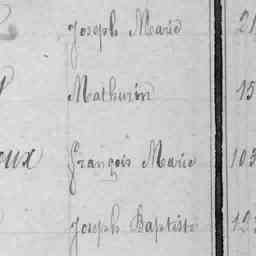 Joseph Marie 21
Mathurin 15
oux François Marie 103
Joseph Baptiste